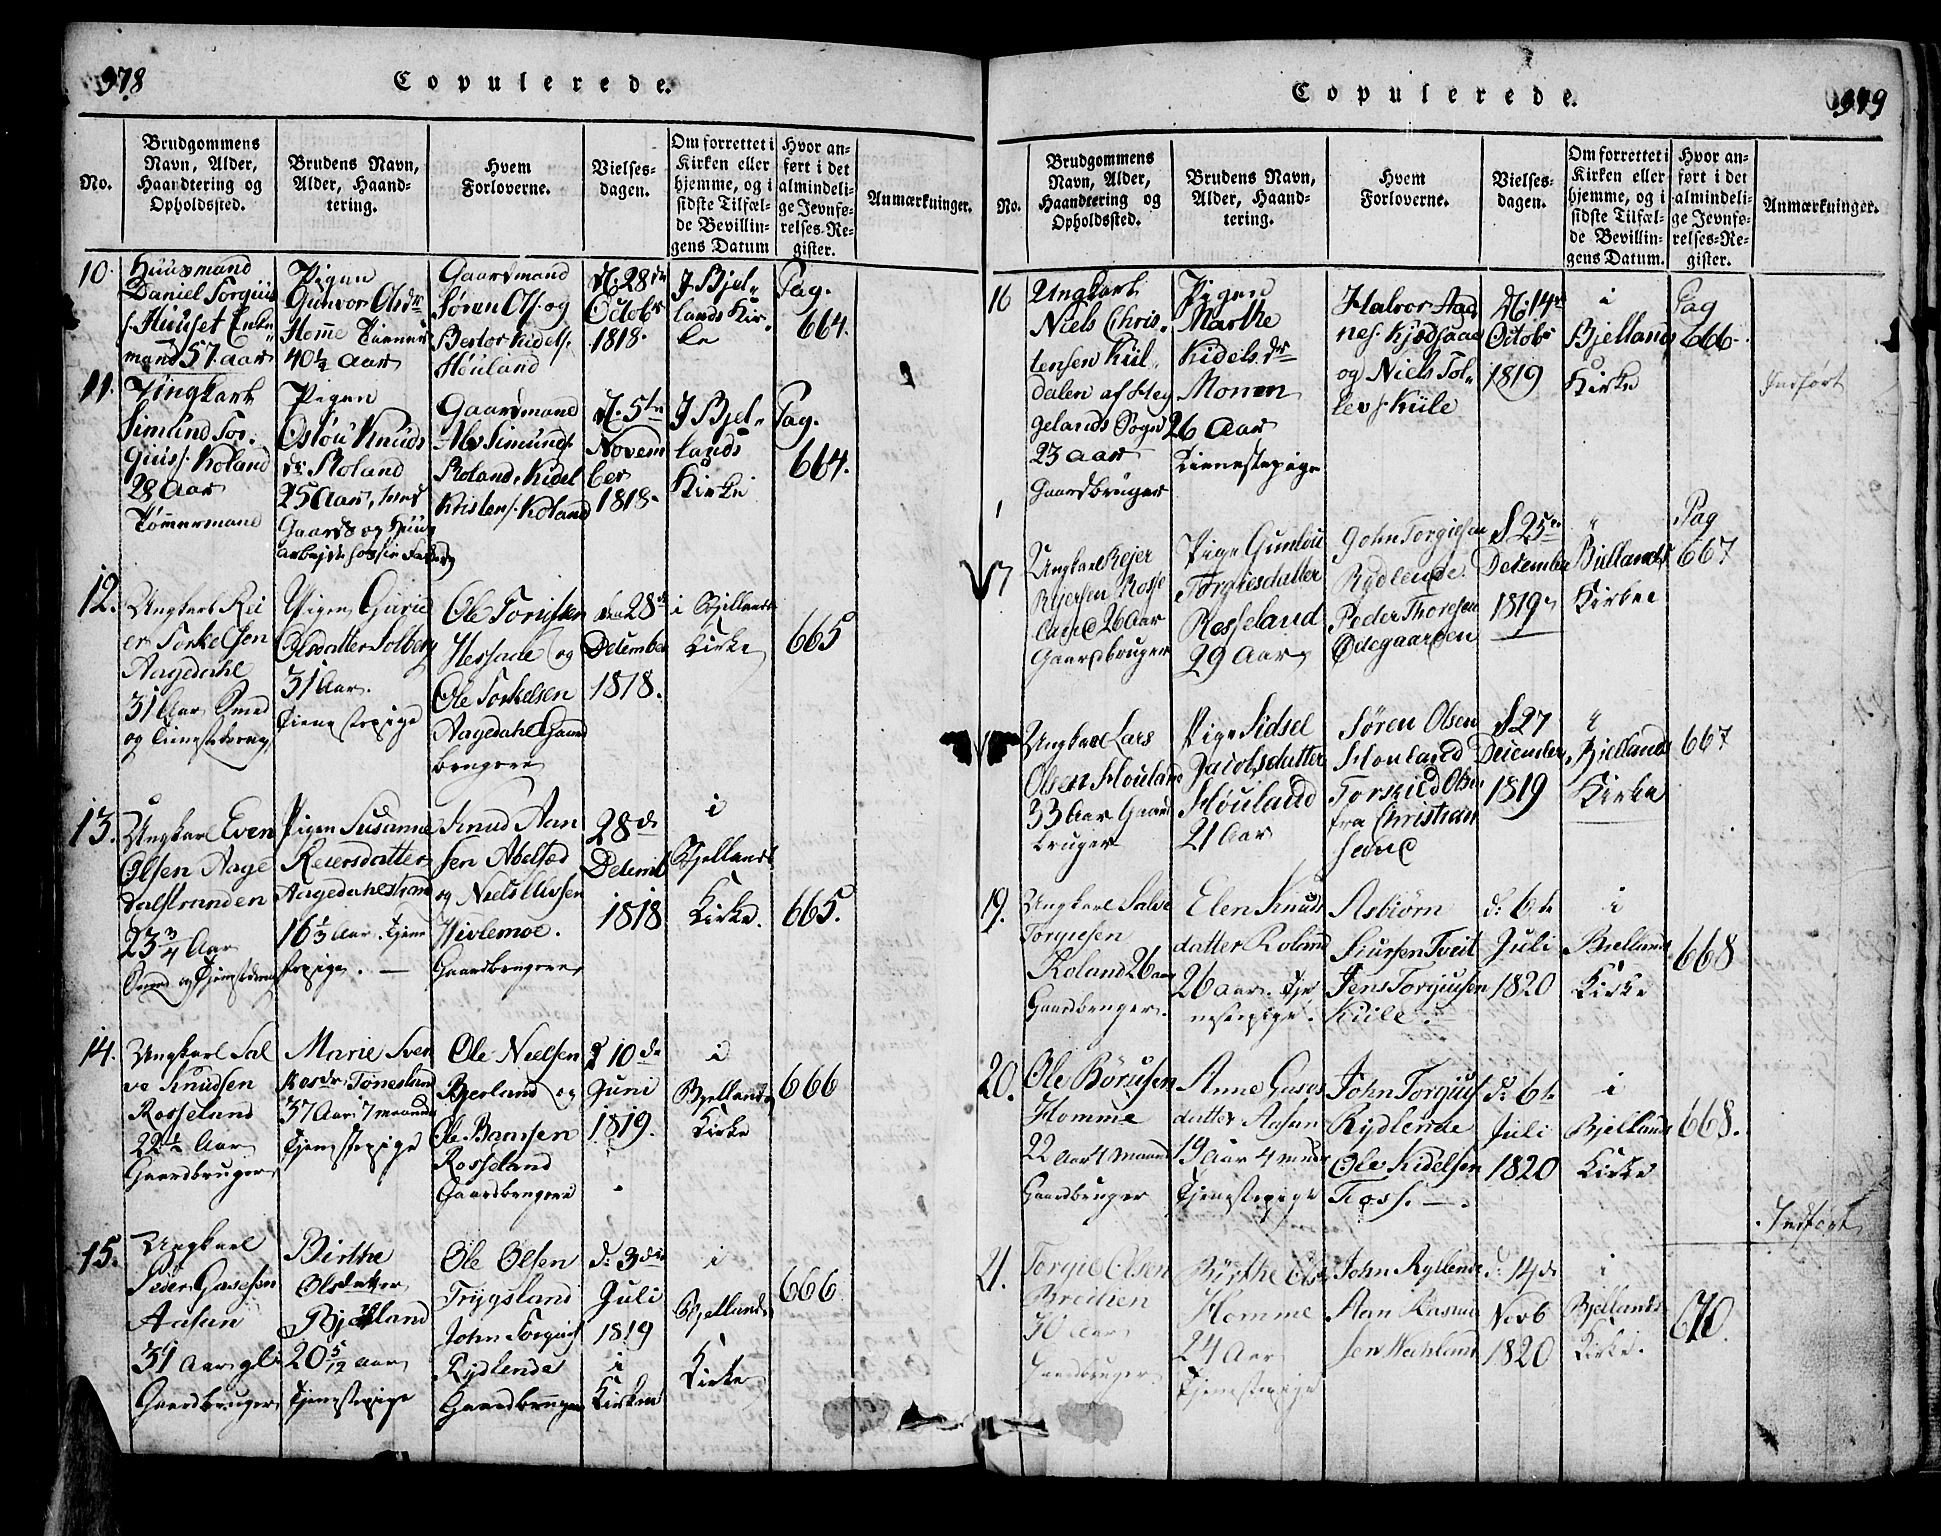 378
Copulerede.
No.
Brudgommens
Navn, Alder,
Haandtering og
Opholdssted.
Brudens Navn,
Alder, Haand-
tering.
Hvem
Forloverne.
Vielses-
dagen.
Om forrettet i
Kirken eller
hjemme, og i
sidste Tilfæl-
de Bevillin-
gens Datum
Hvor an-
ført i det
almindeli-
ge Jevnfø-
relses-Re-
gister.
Anmærkninger.
10.
Huusmand
Daniel Torgius
s. Huuset Enke
mand 57. Aar
Pigen
Gunvor Olsdr
Homme
40½ Aar
Gaardmand
Søren Ols. og
Bertor Kidels.
Houland
d. 28de
Octobr
1818.
I Bjel-
lands Kir-
ke
Pag.
664.
11.
Ungkarl
Simund Tor-
gius. Roland
28 Aar
Tømmermand
Pigen
Oslou Knuds
dr. Roland
25 Aar, med
Gaards og Huus
arbejde hos sin Fader
Gaardmand
Alv Simunds.
Roland, Kidel
Kristens. Roland
d. 5te
Novem
ber
1818.
I Bjel-
lands
Kirke
Pag.
664.
12.
Ungkarl Rei
er Torkelsen
Aagedahl
31 Aar Smed
og Tienestedreng
Pigen Guri
Olsdatter Solberg
31 Aar.
Tienestepige
Ole Torgisen
Hessaae og
Ole Torkelsen
Aagedahl Gaard
brugere
den 28de
Desember
1818.
i Bjellands
Kirke
665
13.
Ungkarl Even
Olsen Aage
dalstranden
23¾ Aar
Smed og Tjenestdreng
Pigen Susanne
Reiersdatter
Aagedahlstrand
16⅓ Aar. Tjene
stepige.
Knud Aan
sen Abelsæd
og Niels Ulvsen
Hivlemoe.
Gaardbrugere
28de
Desemb
1818
i
Bjellands
Kirke.
665.
14.
Ungkarl Sal
ve Knudsen
Rosseland
22½ Aar
Gaardbruger
Marie Sven
kesdr. Tønesland
37 Aar 7 maaneder
Tjenestepige
Ole Nielsen
Bjerland og
Ole Bamsen
Rosseland
Gaardbrugere
d 10de
Juni
1819.
i
Bjellands
Kirke
666
15.
Ungkarl
Peder Gasesen
Aasen
31 Aar gl.
Gaardbruger
Birthe
Olsdatter
Bjelland
20 5/12 Aar
Tjenestepige
Ole Olsen
Trygsland
John Torgius
Rydlende
Gaardbrugere
d. 3die
Juli
1819
i
Kirken
i
Bjellands
Kirke
666
379
Copulerede.
No.
Brudgommens
Navn, Alder,
Haandtering og
Opholdssted.
Brudens Navn,
Alder, Haand-
tering.
Hvem
Forloverne.
Vielses-
dagen.
Om forrettet i
Kirken eller
hjemme, og i
sidste Tilfæl-
de Bevillin-
gens Datum.
Hvor an-
ført i det
almindeli-
ge Jevnfø-
relses-Re-
gister.
Anmærkninger.
16
Ungkarl
Niels Chris-
tensen Kul-
dalen af Høg
gelands Sogn
23 Aar
Gaardbruger
Pigen
Marthe
Kidels.dr
Monen
26 Aar
Tienestepige
Halvor Aad
nes. Kjødsaae
og Niels Tol-
levs. Kule
d. 14de
Octobr
1819
i
Bjellands
Kirke
Pag
666.
Indført
17
Ungkarl Rejer
Rejersen Rosse
land 26 Aar
Gaardbruger
Pige Gunlou
Torgiesdatter
Rosseland
29 Aar
John Torgiesen
Rydlende.
Peder Thoresen
Ødegaarden
d 25de
Desember
1819
Bjellands
Kirke
Pag
667
Ungkarl Lars
Olsen Houland
33 Aar Gaard
bruger
Pige Sidsel
Jacobsdatter
Houland
21 Aar
Søren Olsen
Houland
Torskild Olsen
fra Christian
sand
d 27
December
1819
Bjellands
Kirke
667
19.
Ungkarl Salve
Torgiesen
Roland 26 aar
Gaardbruger.
Elen Knuds
datter Roland
26 aar. Tje
nestepige.
Asbiørn
Siursen Tveit
Jens Torgiusen
Kule.
d. 6te
Juli
1820
i
Bjellands
Kirke
668
20.
Ole Børusen
Homme
22 Aar 4 Maand
Gaardbruger
Anne Gases
datter Aasen
19 Aar 4 mndr
Tjenestepige
John Torgius
Rydlende
Ole Kidelsen
Foss.
d. 6te
Juli
1820
i
Bjellands
Kirke
668.
Indført
21.
Torgie Olsen
Breilien
30 Aar
Gaardbruger
Birthe Ols
Homme
24 Aar
Tjenestepige
John Ryllende
Aan Rasmus
sen
d. 14de
Novb
1820
i
Bjellands
Kirke.
670.